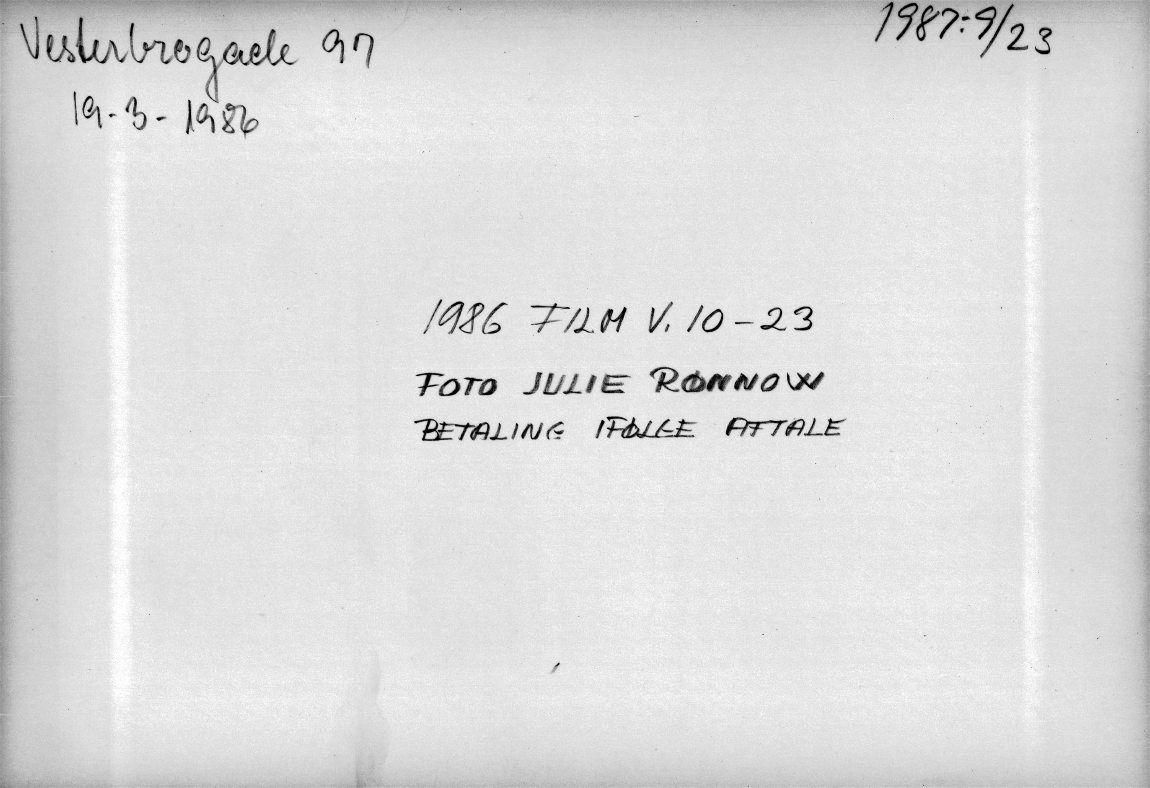 Vesterbrogade 97
19-3-1986
1987:9/23
1986 FILM V. 10-23
FOTO JULIE RØNNOW
BETALING IFØLGE AFTALE